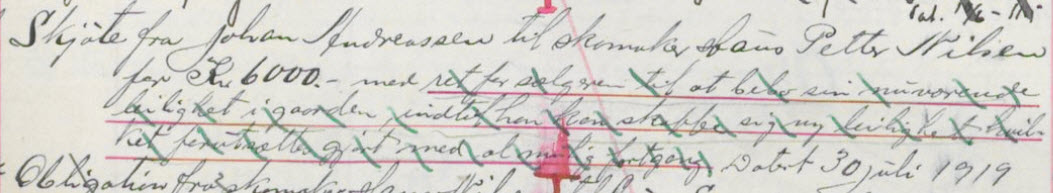 Skjöte fra Johan Andreassen til skomaker Hans Petter Nilsen
for Kr. 6000.- med ret for sælgeren til at bebo sin nuværende
leilighet i gaarden, indtil han kan skaffe sig ny leilighet hvil-
ket forutsættes gjort med al mulig fortgang. Datert 30 juli 1919
Obligation fra skomaker